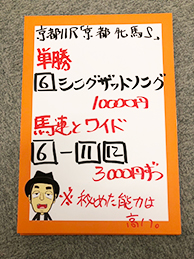 京都11R「京都牝馬S」
単勝
6 シングザットソング
10000円
馬連とワイド
6-11 12
3000円ずつ
※秘めた能力は
高い。